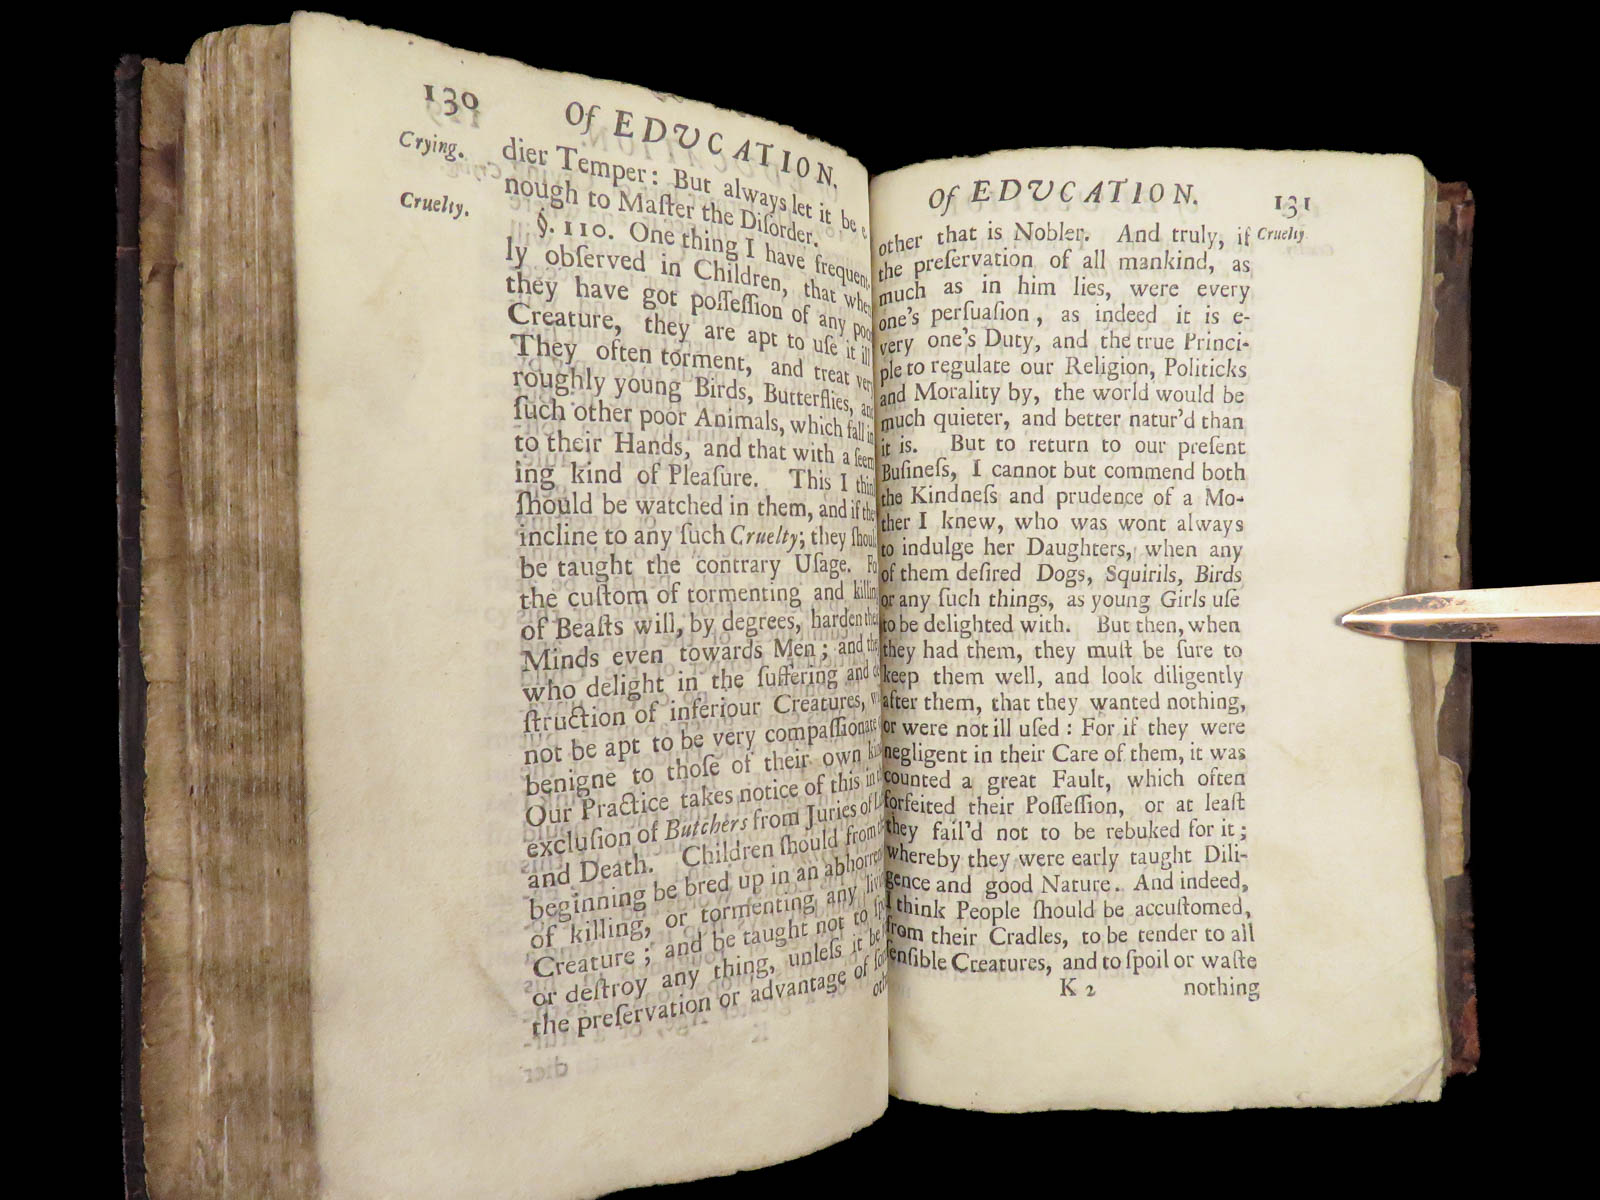 130
Of EDVCATION.
Crying.
Cruelty.
dier Temper: But always let it be e
nough to Maſter the Diſorder.
§. 110. One thing I have frequent
ly obſerved in Children, that when
they have got poſſeſſion of any poor
Creature, they are apt to uſe it ill
They often torment, and treat very
roughly young Birds, Butterflies, and
ſuch other poor Animals, which fall in
to their Hands, and that with a ſeem
ing kind of Pleaſure. This I thin
ſhould be watched in them, and if they
incline to any ſuch Cruelty; they ſhoul
be taught the contrary Uſage. Fo
the cuſtom of tormenting and killin
of Beaſts will, by degrees, harden their
Minds even towards Men; and they
who delight in the ſuffering and de
ſtruction of inferiour Creatures, wi
not be apt to be very compaſſionate
benigne to thoſe of their own kin
Our Practice takes notice of this in t
excluſion of Butchers from Juries of L
and Death. Children ſhould from the
beginning be bred up in an abhorren
of killing, or tormenting any livi
Creature; and be taught not to ſpo
or deſtroy any thing, unleſs it be f
the preſervation or advantage of ſo
oth
Of EDVCATION.
131
Cruelty
other that is Nobler. And truly, if
the preſervation of all mankind, as
much as in him lies, were every
one's perſuaſion, as indeed it is e-
very one's Duty, and the true Princi-
ple to regulate our Religion, Politicks
and Morality by, the world would be
much quieter, and better natur'd than
it is. But to return to our preſent
Buſineſs, I cannot but commend both
the Kindneſs and prudence of a Mo-
ther I knew, who was wont always
to indulge her Daughters, when any
of them deſired Dogs, Squirils, Birds
or any ſuch things, as young Girls uſe
to be delighted with. But then, when
they had them, they muſt be ſure to
keep them well, and look diligently
after them, that they wanted nothing,
or were not ill uſed: For if they were
negligent in their Care of them, it was
counted a great Fault, which often
forfeited their Poſſeſſion, or at leaſt
they fail'd not to be rebuked for it;
whereby they were early taught Dili-
gence and good Nature. And indeed,
I think People ſhould be accuſtomed,
from their Cradles, to be tender to all
ſenſible Creatures, and to ſpoil or waſte
K 2 nothing